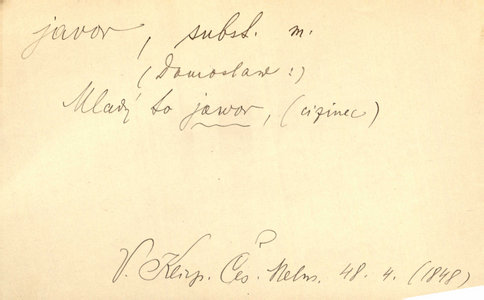 javor, subst. m.
(Domoslaw:)
Mladý to jawor, (cizinec)
V. Čes. 48. 4. (1848)